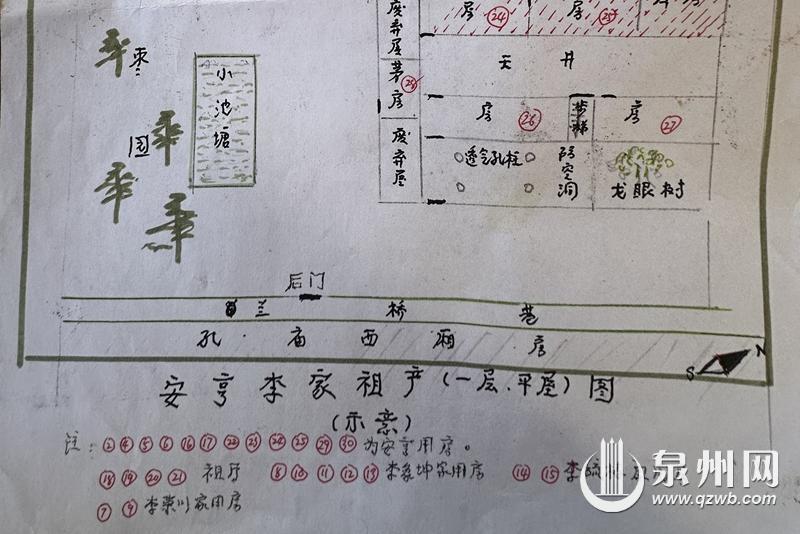 废弃屋
房 ㉔
房 ㉕
枣园
小池塘
茅房 ㉘
天井
房 ㉖
步梯
房 ㉗
废弃屋
透气孔柱
防空洞
龙眼树
后门
兰桥巷
孔庙西厢房
S N
安亨李家祖产(一层.平屋)图
(示意)
注: ② ④ ⑤ ⑥ ⑯ ⑰ ㉒ ㉓ ㉔ ㉕ ㉙ ㉚ 为安亨用房。
⑱ ⑲ ⑳ ㉑ 祖厅 ⑧ ⑩ ⑪ ⑫ ⑬ 李 坤家用房 ⑭ ⑮ 李
⑦ ⑨ 李荣川家用房
泉州网
www.qzwb.com